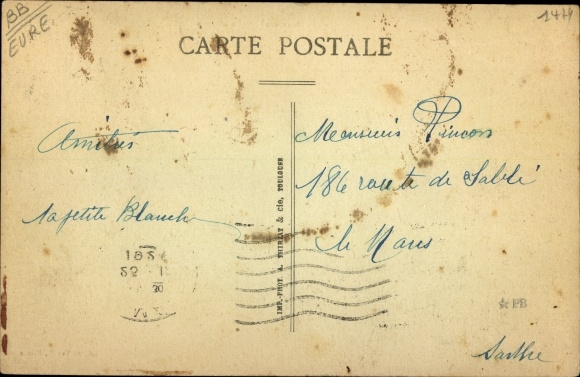 BB
EURE
1474
CARTE POSTALE
Amitiés
la petite Blanche
Monsieur Pincon
186 route de Sablé
le Mans
Sarthe
IMP.-PHOT. A. THIRIAT & Cie, TOULOUSE
20
☆PB